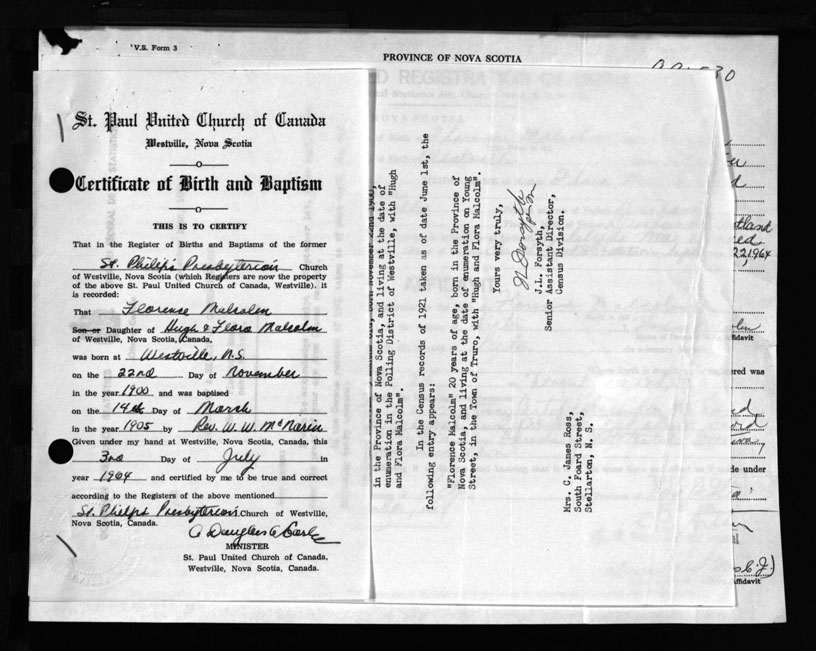 V.S. Form 3
PROVINCE OF NOVA SCOTIA
St. Paul United Church of Canada
Westville, Nova Scotia
Certificate of Birth and Baptism
THIS IS TO CERTIFY
That in the Register of Births and Baptisms of the former
St. Philip's Presbyterian Church
of Westville, Nova Scotia (which Registers are now the property
of the above St. Paul United Church of Canada, Westville). it
is recorded:
That Florence Malcolm
Son or Daughter of Hugh & Flora Malcolm
of Westville, Nova Scotia, Canada.
was born at Westville, N.S.
on the 22nd Day of November
in the year 1900 and was baptised
on the 14th Day of March
in the year 1905 by Rev. W. W. McNairn
Given under my hand at Westville, Nova Scotia, Canada, this
3rd Day of July in
year 1964 and certified by me to be true and correct
according to the Registers of the above mentioned
St. Philip's Presbyterian Church of Westville,
Nova Scotia, Canada.
MINISTER
St. Paul United Church of Canada,
Westville, Nova Scotia, Canada.
in the Province of Nova Scotia, and living at the date of
enumeration in the Polling District of Westville, with "Hugh
and Flora Malcolm".
In the Census records of 1921 taken as of date June 1st, the
following entry appears:
"Florence Malcolm" 20 years of age, born in the Province of
Nova Scotia, and living at the date of enumeration on Young
Street, in the Town of Truro, with "Hugh and Flora Malcolm".
Yours very truly,
J.L. Forsyth,
Senior Assistant Director,
Census Division.
Mrs. C. James Ross,
South Foard Street,
Stellarton, N. S.